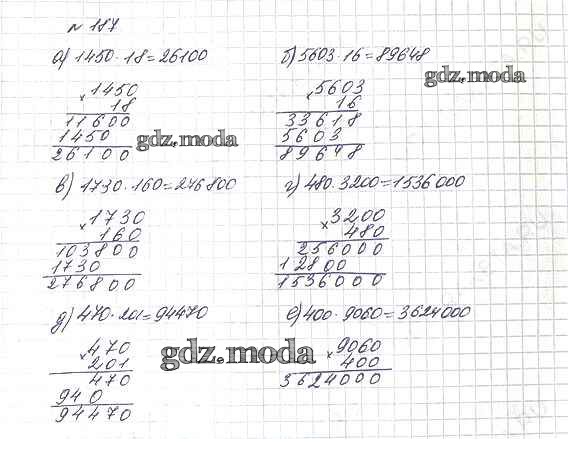 № 187
а) 1450 · 18 = 26100
× 1450
18
11600
1450
26100
б) 5603 · 16 = 89648
× 5603
16
33618
5603
89648
в) 1730 · 160 = 276800
× 1730
160
103800
1730
276800
г) 480 · 3200 = 1536000
× 3200
480
256000
12800
1536000
д) 470 · 201 = 94470
× 470
201
470
940
94470
е) 400 · 9060 = 3624000
× 9060
400
3624000
gdz.moda
gdz.moda
gdz.moda